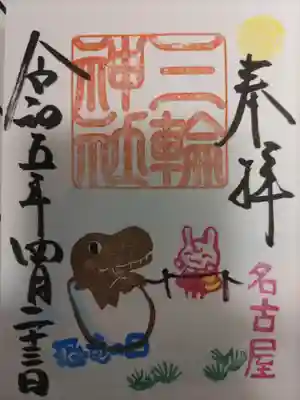 奉拝
三輪
神社
名古屋
恐竜の日
令和五年四月二十三日